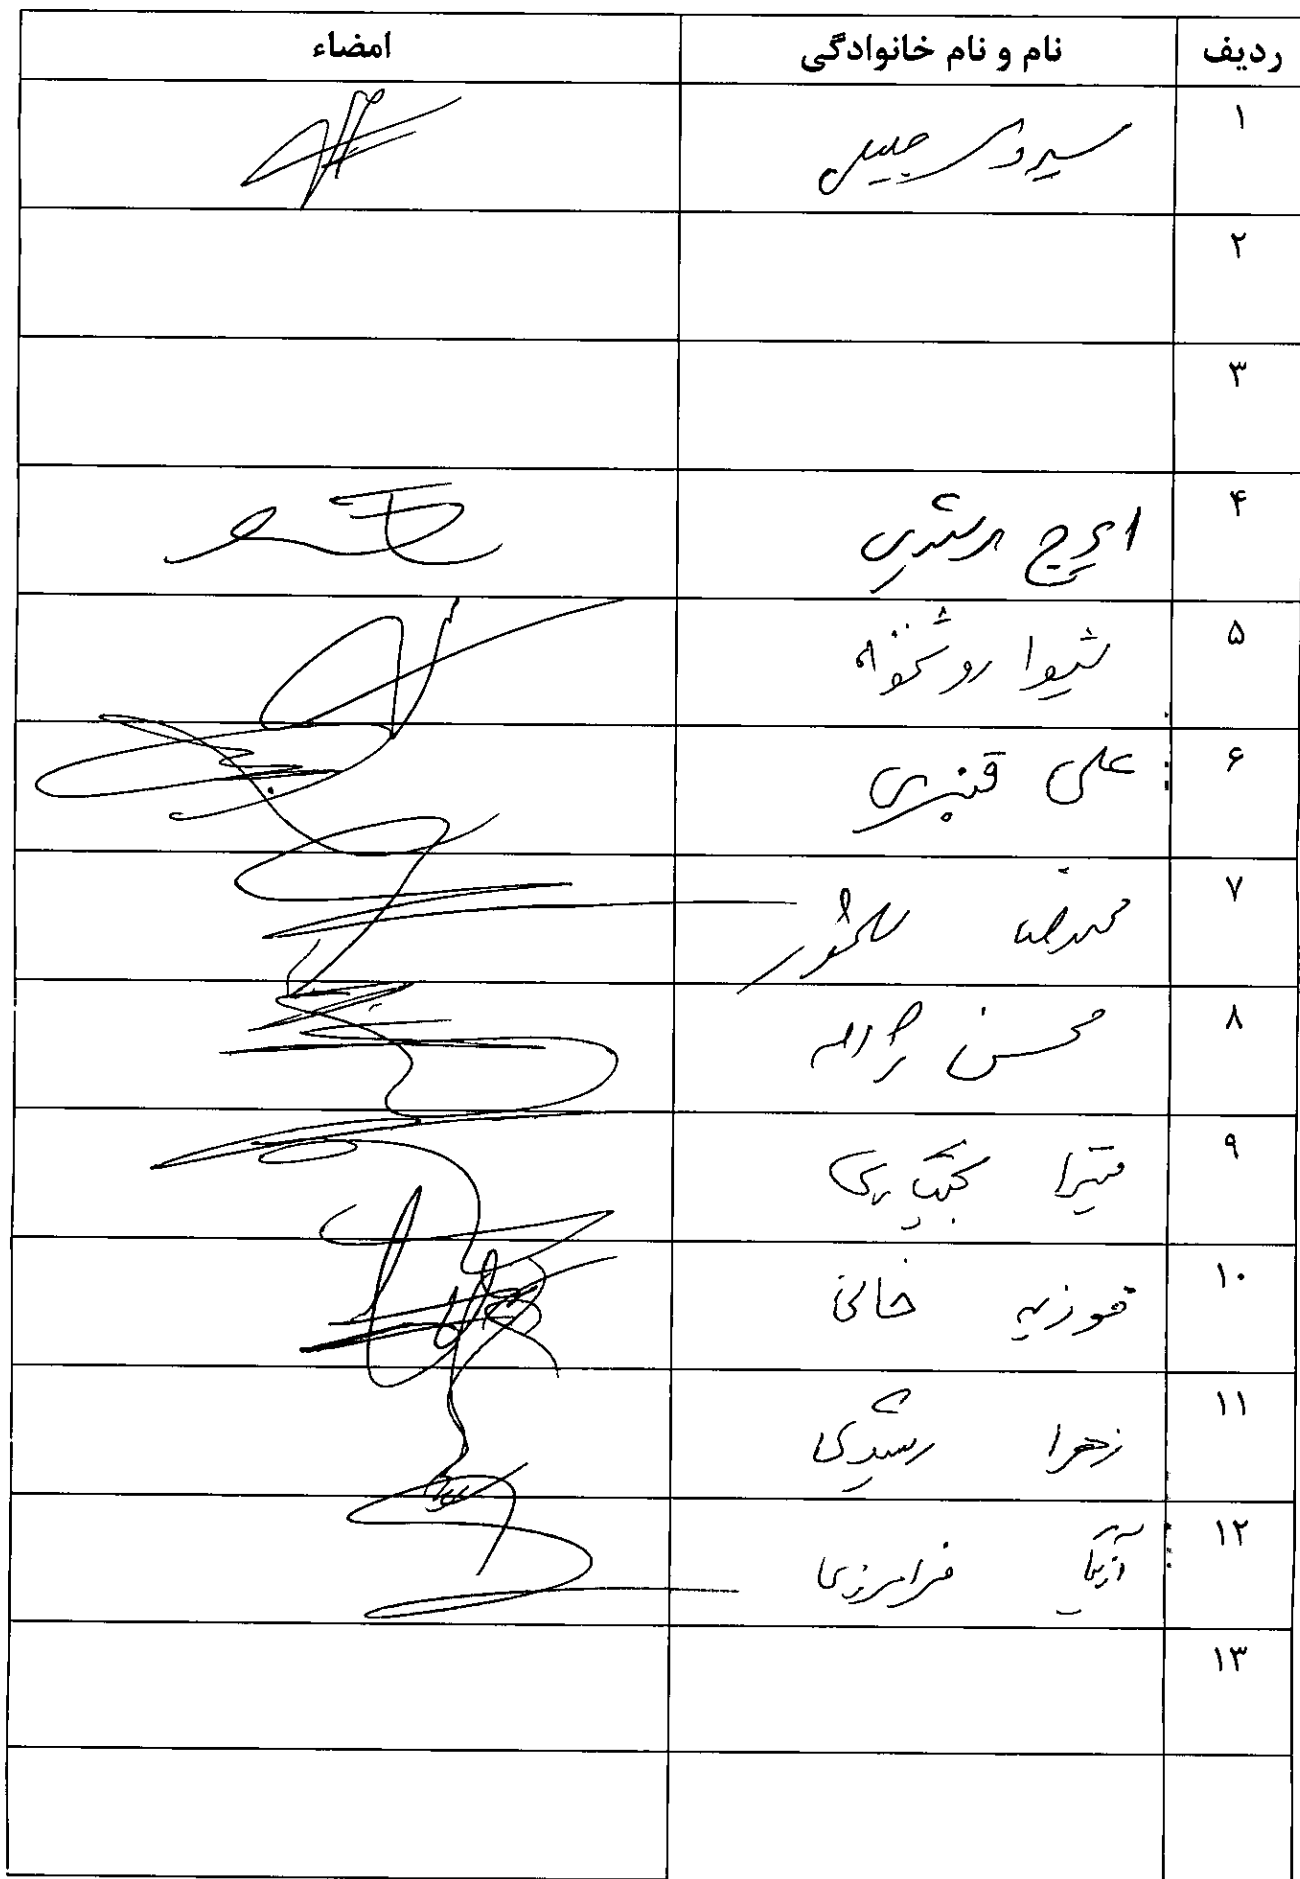 ردیف نام و نام خانوادگی امضاء
۱ سیروس جلیلی
۲
۳
۴ ایرج مرشدی
۵ شیوا
۶ علی قنبری
۷ محمدرضا
۸ محسن
۹ میترا بختیاری
۱۰ فوزیه خانی
۱۱ زهرا رشیدی
۱۲ آزیتا فرامرزی
۱۳